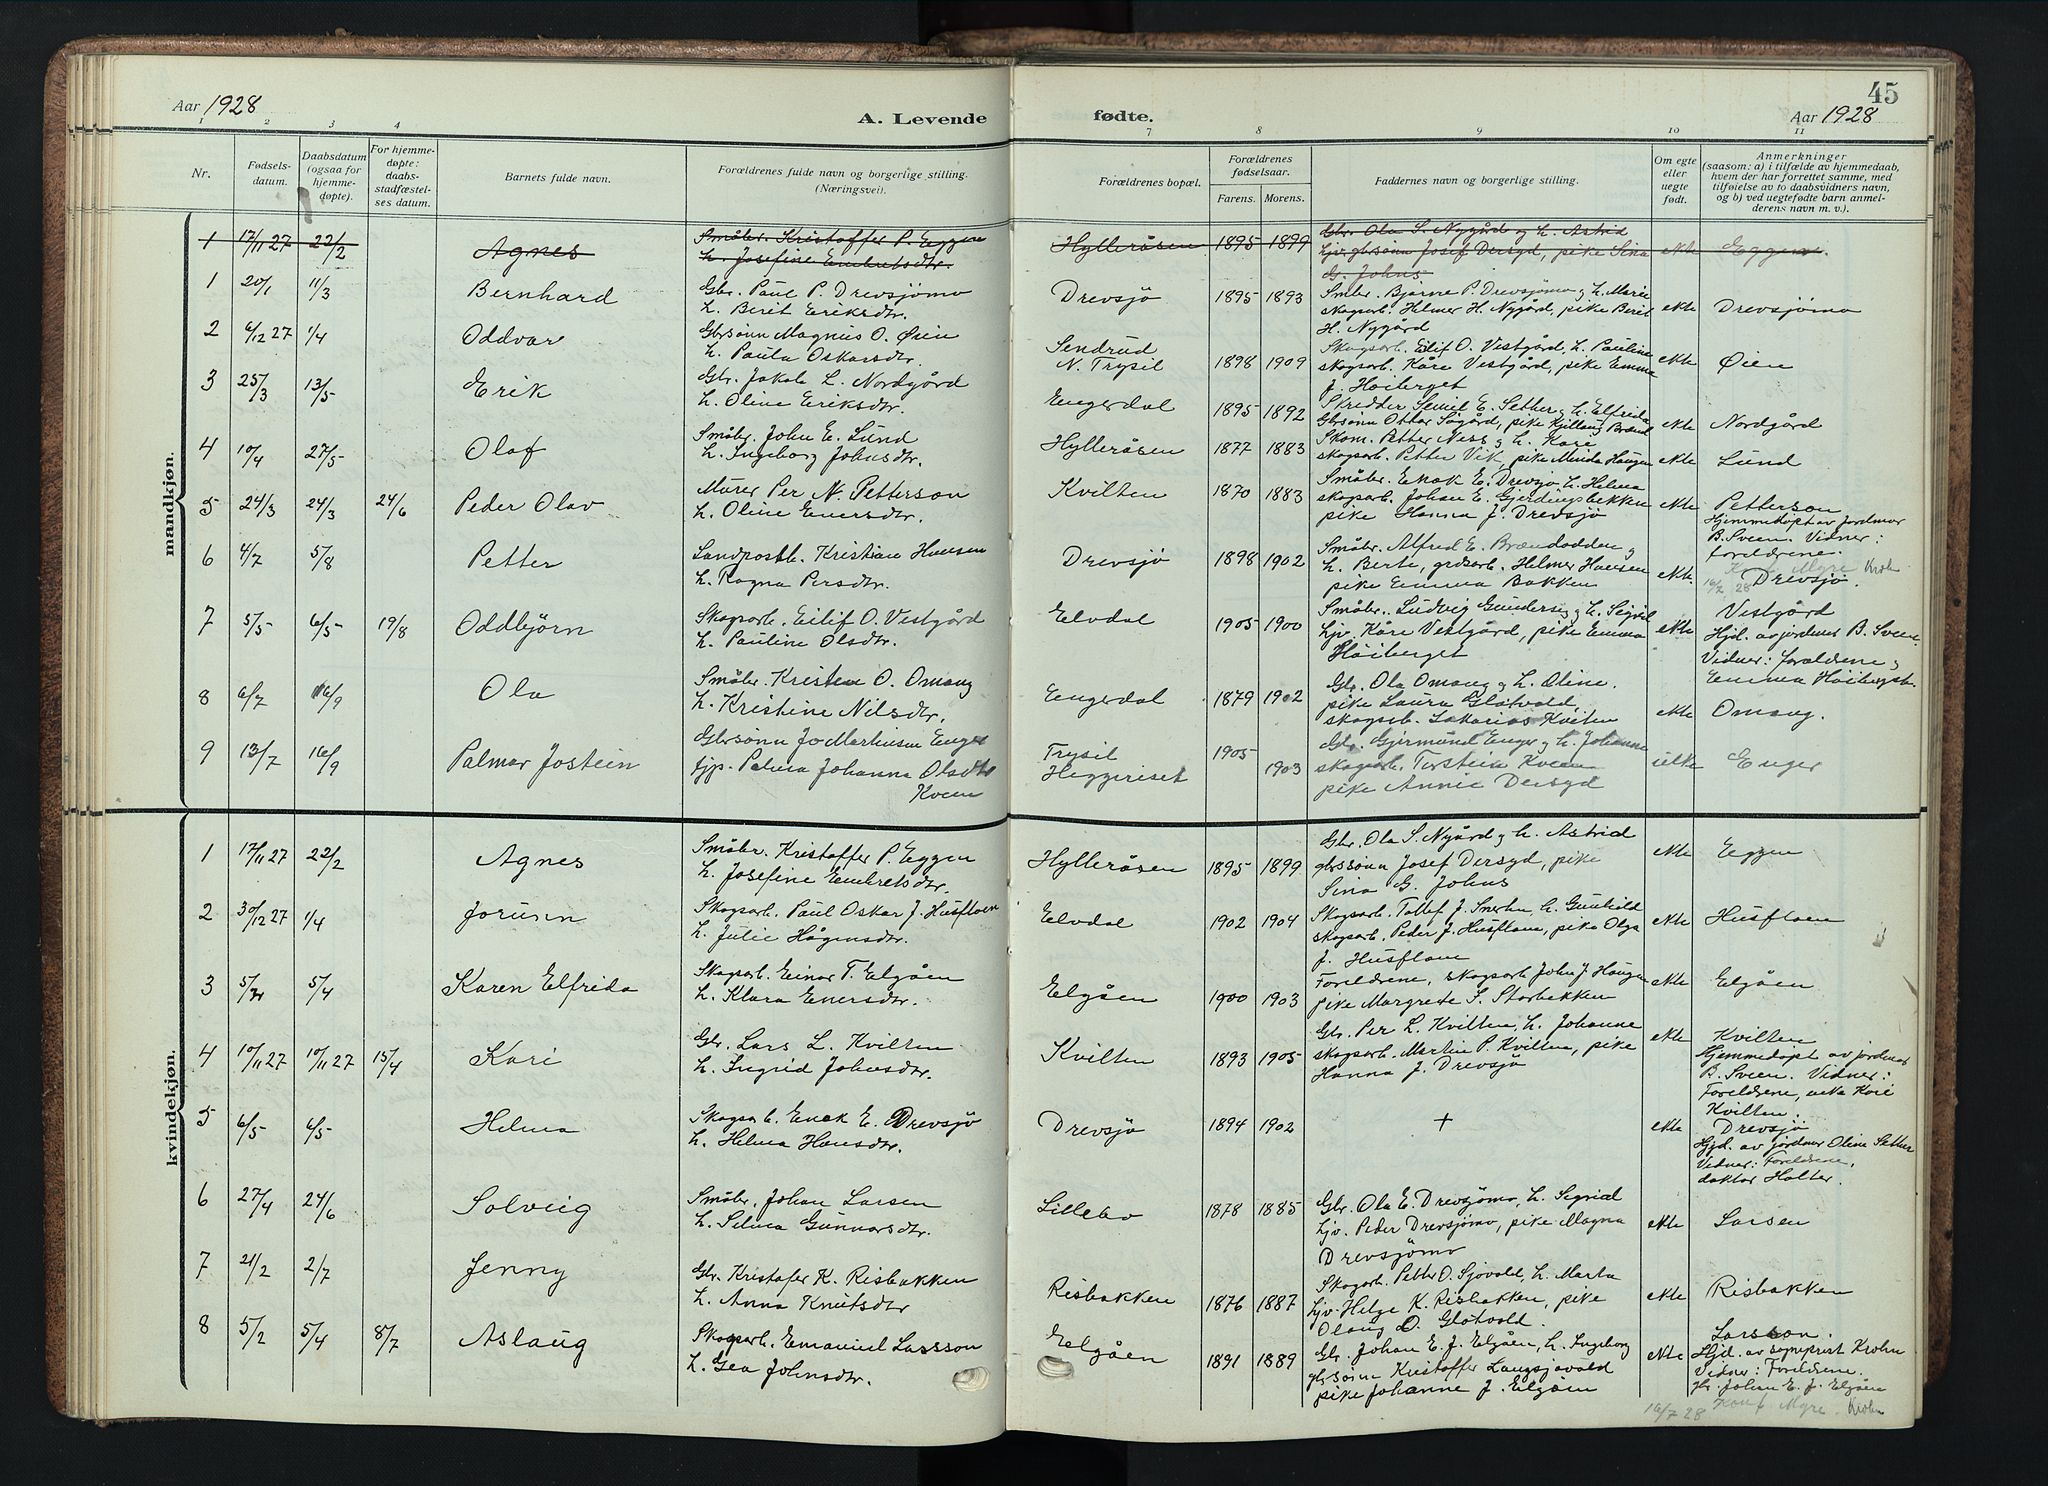 Aar 1928
A. Levende fødte.
45
Aar 1928
1 2 3 4 7 8 9 10 11
Nr.
Fødsels-
datum.
Daabsdatum
(ogsaa for
hjemme-
døpte).
For hjemme-
døpte:
daabs-
stadfæstel-
ses datum.
Barnets fulde navn.
Forældrenes fulde navn og borgerlige stilling.
(Næringsvei).
Forældrenes bopæl.
Forældrenes
fødselsaar.
Farens. Morens.
Faddernes navn og borgerlige stilling.
Om egte
eller
uegte
født.
Anmerkninger
(saasom: a) i tilfælde av hjemmedaab,
hvem der har forrettet samme, med
tilføielse av to daabsvidners navn,
og b) ved uegtefødte barn anmel-
derens navn m. v.).
mandkjøn.
1 17/11 27 22/2 Agnes
Småbr. Kristoffer P. Eggen
h. Josefine Embretsdtr.
Hylleråsen 1895 1899
Gbr. Ola S. Nygård og h. Astrid
ljv. gbrsønn Josef Dersyd, pike Sina
G. Johns
ekte Eggen.
1 20/1 11/3 Bernhard
Gbr. Paul P. Drevsjømo
h. Beret Eriksdtr.
Drevsjö 1895 1893
Småbr. Bjarne P. Drevsjømo og h. Marie
skogsarb. Helmer H. Nygård, pike Beret
H. Nygård
ekte Drevsjömo
2 6/12 27 1/4 Oddvar
Gbrsønn Magnus O. Øien
h. Paula Oskarsdtr.
Sendrud
N. Trysil
1898 1909
Skogsarb. Eilif O. Vestgård, h. Pauline
skogsarb. Kåre Vestgård, pike Emma
J. Høiberget
ekte Øien
3 25/3 13/5 Erik
Gbr. Jakob L. Nordgård
h. Oline Eriksdtr.
Engerdal 1895 1892
Skredder Semil E. Sether og h. Elfrida
Gbrsønn Ottar Sögård, pike Kjellaug Brænd
ekte Nordgård
4 10/4 27/5 Olaf
Småbr. John E. Lund
h. Ingeborg Johnsdtr.
Hylleråsen 1877 1883
Skom. Petter Ness og h. Kare
skogsarb. Petter Vik, pike Minda Haugen
ekte Lund
5 24/3 24/3 24/6 Peder Olav
Murer Per N. Petterson
h. Oline Enersdtr.
Kvilten 1870 1883
Småbr. Enok E. Drevsjö h. Helma
skogsarb. Johan E. Gjerdingsbekken
pike Hanna J. Drevsjö
ekte Petterson
Hjemmedøpt av jordmor
B. Sveen. Vidner:
foreldrene.
Konf. Myre Krohn
16/7 28
6 4/7 5/8 Petter
Landpostb. Kristian Hansen
h. Ragna Persdtr.
Drevsjö 1898 1902
Småbr. Alfred E. Brændodden og
h. Berte, grdsarb. Helmer Hansen
pike Emma Bakken
ekte Drevsjö.
7 5/5 6/5 19/8 Oddbjörn
Skogsarb. Eilif O. Vestgård
h. Pauline Olsdtr.
Elvdal 1905 1900
Småbr. Ludvig Gundersen og h. Segrid
ljv. Kåre Vestgård, pike Emma
Høiberget
ekte Vestgård
Hjd. av jordmor B. Sveen
Vidner: foreldrene og
Emma Høibergst.
8 6/7 16/9 Ola
Småbr. Kristen O. Omang
h. Kristine Nilsdtr.
Engerdal 1879 1902
Gbr. Ola Omang og h. Oline.
pike Laura Glötvold,
skogsarb. Sakarias Kvilten
ekte Omang.
9 13/7 16/9 Palmar Jostein
Gbrsønn Jo Martinsen Enger
fjp. Palma Johanna Olsdtr
Kveen
Trysil
Heggeriset
1905 1903
Gbr. Gjermund Enger og h. Johanne
skogsarb. Torstein Kveen
pike Annie Dersyd
uekte Enger
kvindekjøn.
1 17/11 27 22/2 Agnes
Småbr. Kristoffer P. Eggen
h. Josefine Embretsdtr.
Hylleråsen 1895 1899
Gbr. Ola S. Nygård og h. Astrid
gbrsønn Josef Dersyd, pike
Sina G. Johns
ekte Eggen
2 30/12 27 1/4 Jorunn
Skogsarb. Paul Oskar J. Husfloen
h. Julie Hågensdtr.
Elvdal 1902 1904
Skogsarb. Tollef J. Snerten, h. Gunhild
skogsarb. Peder J. Husfloen, pike Olga
J. Husfloen
ekte Husfloen
3 5/2 5/4 Karen Elfrida
Skogsarb. Einar T. Elgåen
h. Klara Enersdtr.
Elgåen 1900 1903
Foreldrene, skogsarb John J. Haugen
pike Margrete S. Storbekken
ekte Elgåen
4 10/11 27 10/11 27 15/4 Kari
Gbr. Lars L. Kvilten
h. Ingrid Johnsdtr.
Kvilten 1893 1905
Gbr. Per L. Kvilten, h. Johanne
skogsarb. Martin P. Kvilten, pike
Hanna J. Drevsjö
ekte Kvilten
Hjemmedøpt av jordmor
B. Sveen. Vidner:
Foreldrene, enke Kari
Kvilten.
5 6/5 6/5 Helma
Skogsarb. Enok E. Drevsjö
h. Helma Hansdtr.
Drevsjö 1894 1902
+
ekte Drevsjö
Hjd. av jordmor Oline Sether
Vidner: Foreldrene,
doktor Holter.
6 27/4 24/6 Solveig
Småbr. Johan Larsen
h. Selma Gunnarsdtr.
Lillebo 1878 1885
Gbr. Ola E. Drevsjömo, h. Segrid
ljv. Peder Drevsjömo, pike Magna
Drevsjömo
ekte Larsen
7 21/2 2/7 Jenny
Gbr. Kristofer K. Risbakken
h. Anna Knutsdtr
Risbakken 1876 1887
Skogsarb. Petter O. Sjövold, h. Marta
ljv. Helge K. Risbakken, pike
Olaug O. Glötvold.
ekte Risbakken
8 5/2 5/4 8/7 Aslaug
Skogsarb. Emanuel Larsson
h. Gea Johnsdtr.
Elgåen 1891 1889
Gbr. Johan E. J. Elgåen, h. Ingeborg
gbrsønn Kristoffer Langsjøvold
pike Johanne J. Elgåen
ekte Larsson.
Hjd. av sogneprest Krohn
Vidner: Foreldrene.
gbr. Johan E. J. Elgåen
16/7 28 Konf. Myre. Krohn